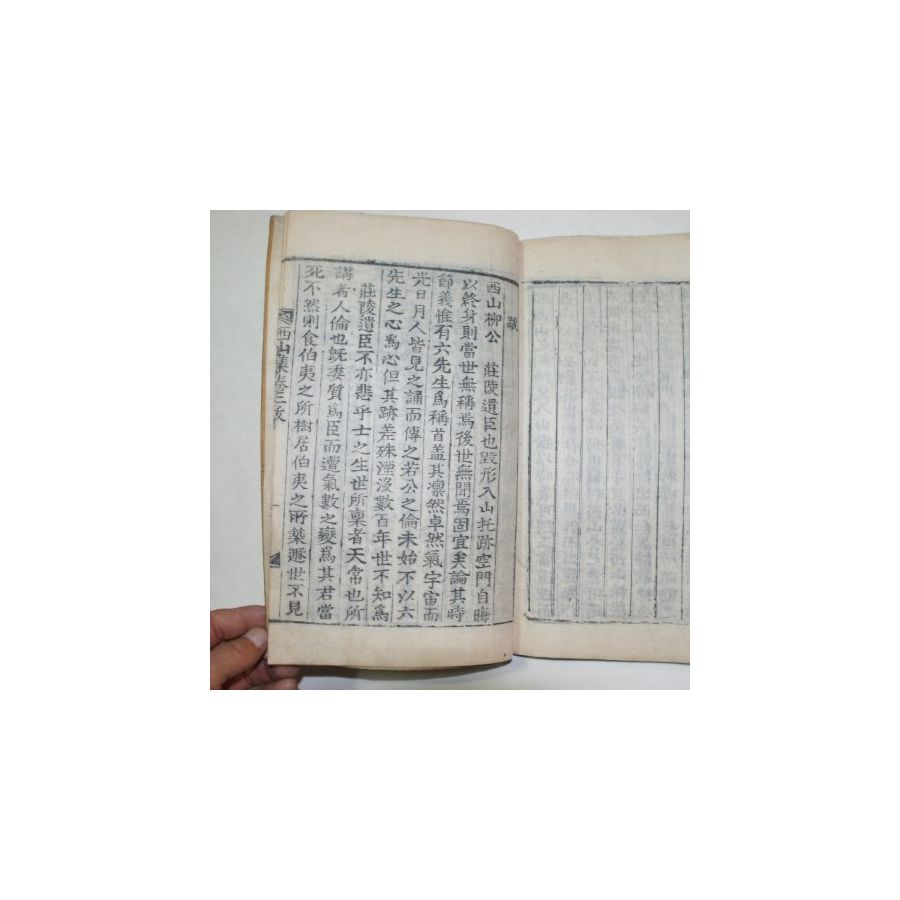 跋
西山柳公 莊陵遺臣也毀形入山托跡空門自晦
以終身則當世無稱焉後世無聞焉固宜矣論其時
節義惟有六先生爲稱首盖其凛然卓然氣宇宙而
光日月人皆見之誦而傳之若公之倫未始不以六
先生之心爲心但其跡差殊湮沒數百年世不知爲
莊陵遺臣不亦悲乎士之生世所稟者天常也所
講者人倫也旣委質爲臣而遭氣數之變爲其君當
死不然則食伯夷之所樹居伯夷之所築遯世不見
西山集卷之二跋